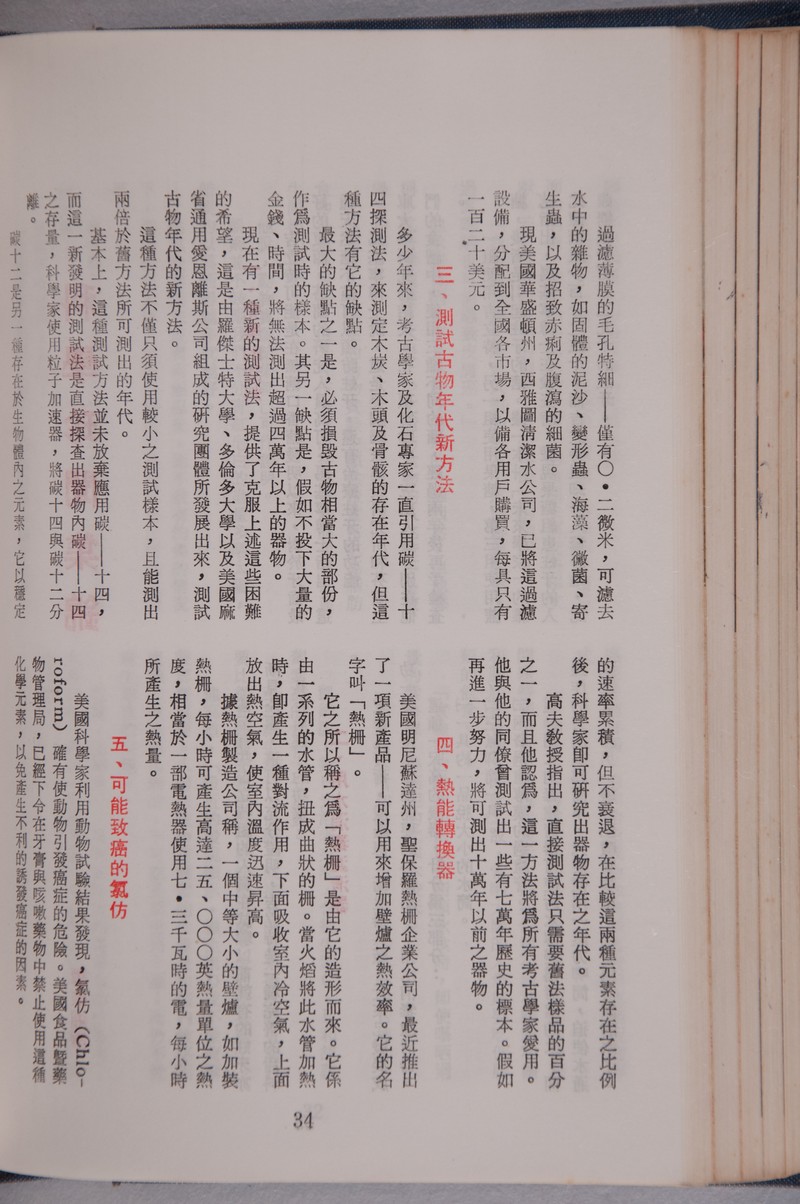 過濾薄膜的毛孔特細——僅有〇•二微米，可濾去
水中的雜物，如固體的泥沙、變形蟲、海藻、黴菌、寄
生蟲，以及招致赤痢及腹瀉的細菌。
現美國華盛頓州，西雅圖清潔水公司，已將這過濾
設備，分配到全國各市場，以備各用戶購買，每具只有
一百二十美元。
三、測試古物年代新方法
多少年來，考古學家及化石專家一直引用碳——十
四探測法，來測定木炭、木頭及骨骸的存在年代，但這
種方法有它的缺點。
最大的缺點之一是，必須損毀古物相當大的部份，
作爲測試時的樣本。其另一缺點是，假如不投下大量的
金錢、時間，將無法測出超過四萬年以上的器物。
現在有一種新的測試法，提供了克服上述這些困難
的希望，這是由羅傑士特大學、多倫多大學以及美國麻
省通用愛恩離斯公司組成的研究團體所發展出來，測試
古物年代的新方法。
這種方法不僅只須使用較小之測試樣本，且能測出
兩倍於舊方法所可測出的年代。
基本上，這種測試方法並未放棄應用碳——十四，
而這一新發明的測試法是直接探查出器物內碳——十四
之存量，科學家使用粒子加速器，將碳十四與碳十二分
離。
碳十二是另一種存在於生物體內之元素，它以穩定
的速率累積，但不衰退，在比較這兩種元素存在之比例
後，科學家卽可研究出器物存在之年代。
高夫教授指出，直接測試法只需要舊法樣品的百分
之一，而且他認爲，這一方法將爲所有考古學家愛用。
他與他的同僚曾測試出一些有七萬年歷史的標本。假如
再進一步努力，將可測出十萬年以前之器物。
四、熱能轉換器
美國明尼蘇達州，聖保羅熱柵企業公司，最近推出
了一項新產品——可以用來增加壁爐之熱效率。它的名
字叫「熱柵」。
它之所以稱之爲「熱柵」是由它的造形而來。它係
由一系列的水管，扭成曲狀的柵。當火熖將此水管加熱
時，卽產生一種對流作用，下面吸收室內冷空氣，上面
放出熱空氣，使室內溫度迅速昇高。
據熱柵製造公司稱，一個中等大小的壁爐，如加裝
熱柵，每小時可產生高達二五、〇〇〇英熱量單位之熱
度，相當於一部電熱器使用七•三千瓦時的電，每小時
所產生之熱量。
五、可能致癌的氯仿
美國科學家利用動物試驗結果發現，氯仿（Chlo-
roform）確有使動物引發癌症的危險。美國食品暨藥
物管理局，已經下令在牙膏與咳嗽藥物中禁止使用這種
化學元素，以免產生不利的誘發癌症的因素。
34